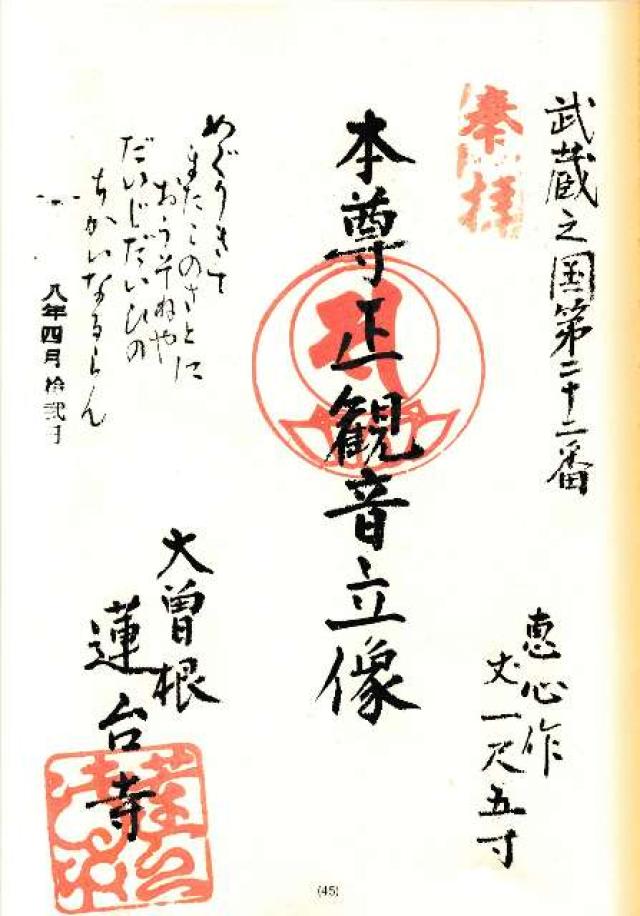 武蔵之国第二十二番
奉拝
恵心作
丈一尺五寸
本尊正観音立像
めぐりきて
またこのさとに
おうそねや
だいじだいひの
ちかいなるらん
八年四月拾弐日
大曽根
蓮台寺
(45)